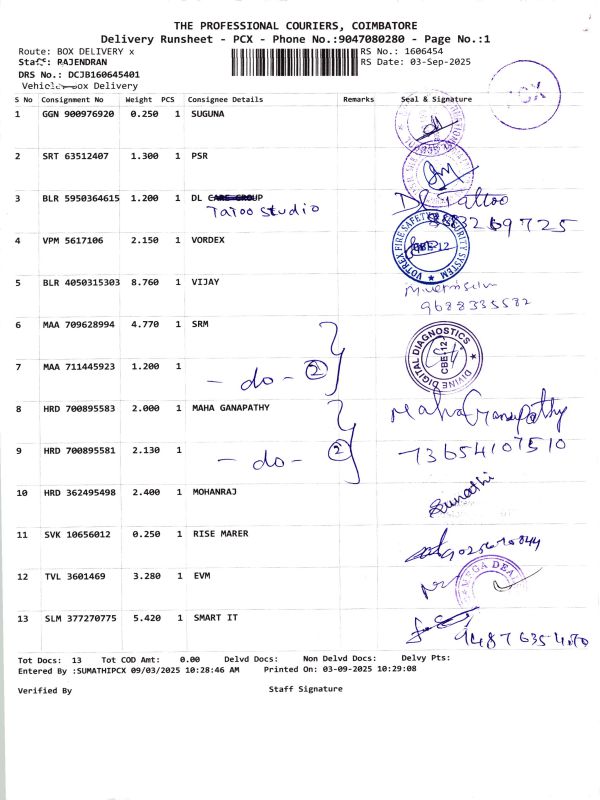 THE PROFESSIONAL COURIERS, COIMBATORE
Delivery Runsheet - PCX - Phone No.:9047080280 - Page No.:1
Route: BOX DELIVERY x RS No.: 1606454
Staff: RAJENDRAN RS Date: 03-Sep-2025
DRS No.: DCJB160645401
Vehicle Box Delivery
S No Consignment No Weight PCS Consignee Details Remarks Seal & Signature
1 GGN 900976920 0.250 1 SUGUNA
2 SRT 63512407 1.300 1 PSR
3 BLR 5950364615 1.200 1 DL CARE GROUP DL Tattoo
Tatoo studio
4 VPM 5617106 2.150 1 VORDEX
VOTREX FIRE SAFETY & SECURITY SYSTEM CBE-12
5 BLR 4050315303 8.760 1 VIJAY
9688335582
6 MAA 709628994 4.770 1 SRM
DIVINE DIGITAL DIAGNOSTICS CBE-12
7 MAA 711445923 1.200 1
- do - 2
8 HRD 700895583 2.000 1 MAHA GANAPATHY Maha Ganapathy
9 HRD 700895581 2.130 1 73654107510
- do - 2
10 HRD 362495498 2.400 1 MOHANRAJ
11 SVK 10656012 0.250 1 RISE MARER
12 TVL 3601469 3.280 1 EVM
13 SLM 377270775 5.420 1 SMART IT
Tot Docs: 13 Tot COD Amt: 0.00 Delvd Docs: Non Delvd Docs: Delvy Pts:
Entered By :SUMATHIPCX 09/03/2025 10:28:46 AM Printed On: 03-09-2025 10:29:08
Verified By Staff Signature